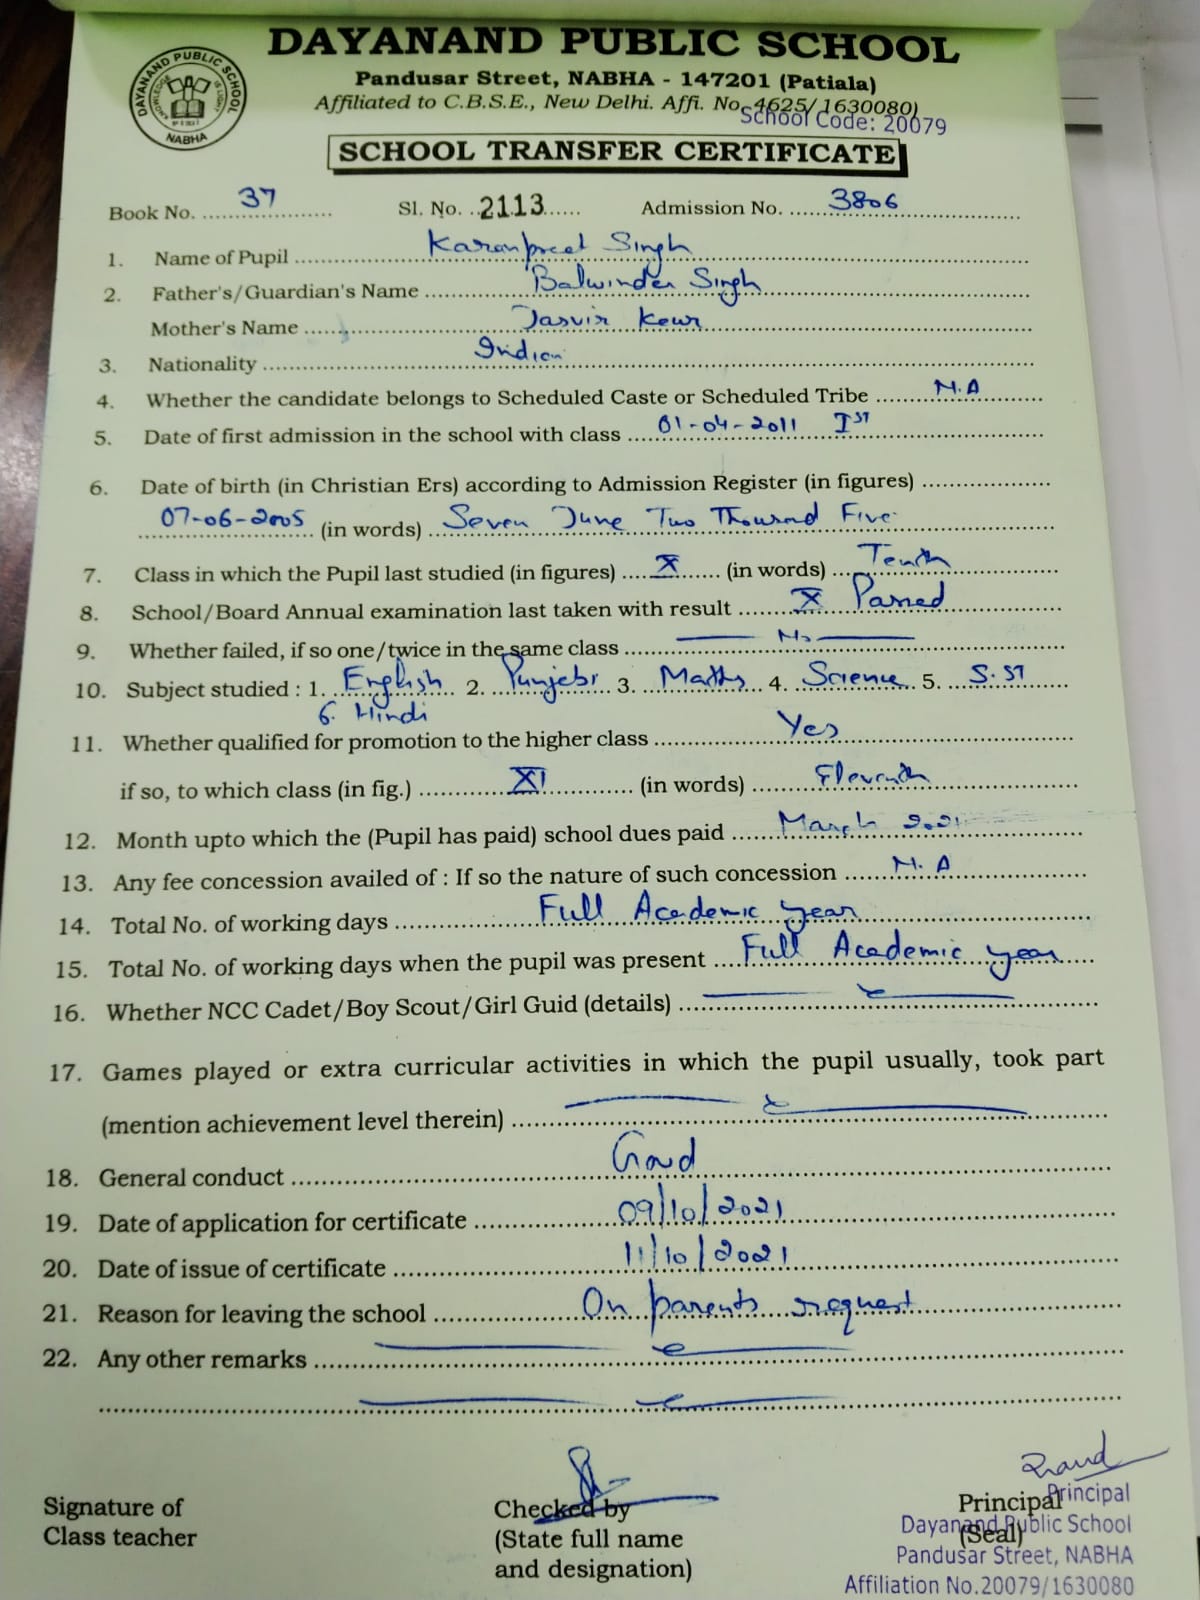 DAYANAND PUBLIC SCHOOL
Pandusar Street, NABHA - 147201 (Patiala)
Affiliated to C.B.S.E., New Delhi. Affi. No. 4625/1630080)
School Code: 20079
DAYANAND PUBLIC SCHOOL
KNOWLEDGE IS LIGHT
NABHA
SCHOOL TRANSFER CERTIFICATE
Book No. 37 Sl. No. 2113 Admission No. 3806
1. Name of Pupil Karanpreet Singh
2. Father's/Guardian's Name Balwinder Singh
Mother's Name Jasvir Kaur
3. Nationality Indian
4. Whether the candidate belongs to Scheduled Caste or Scheduled Tribe N.A
5. Date of first admission in the school with class 01-04-2011 Ist
6. Date of birth (in Christian Ers) according to Admission Register (in figures)
07-06-2005 (in words) Seven June Two Thousand Five
7. Class in which the Pupil last studied (in figures) X (in words) Tenth
8. School/Board Annual examination last taken with result X Passed
9. Whether failed, if so one/twice in the same class No
10. Subject studied : 1. English 2. Punjabi 3. Maths 4. Science 5. S.ST
6. Hindi
11. Whether qualified for promotion to the higher class Yes
if so, to which class (in fig.) XI (in words) Eleventh
12. Month upto which the (Pupil has paid) school dues paid March 2021
13. Any fee concession availed of : If so the nature of such concession N.A
14. Total No. of working days Full Academic year
15. Total No. of working days when the pupil was present Full Academic year
16. Whether NCC Cadet/Boy Scout/Girl Guid (details)
17. Games played or extra curricular activities in which the pupil usually, took part
(mention achievement level therein)
18. General conduct Good
19. Date of application for certificate 09/10/2021
20. Date of issue of certificate 11/10/2021
21. Reason for leaving the school On parents request
22. Any other remarks
Signature of
Class teacher
Checked by
(State full name
and designation)
Principal
(Seal)
Principal
Dayanand Public School
Pandusar Street, NABHA
Affiliation No.20079/1630080